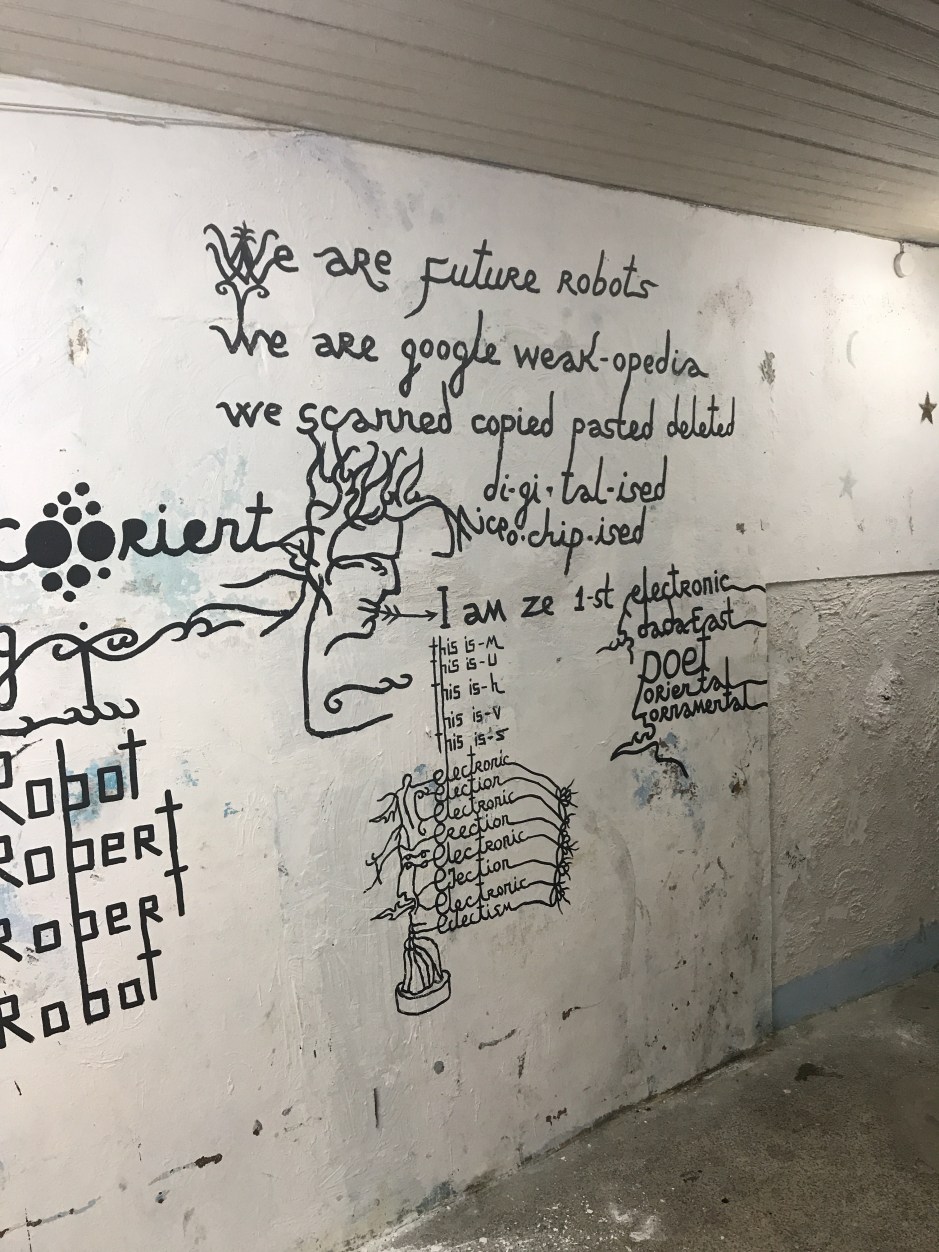 We are future robots
We are google weak-opedia
we scanned copied pasted deleted
di-gi-tal-ised
Micro.chip.ised
coorient
I am ze 1-st electronic
dada East
poet
oriental
ornamental
this is-M
this is-U
this is-h
this is-v
this is-s
electronic
election
electronic
erection
electronic
ejection
electronic
eclectism
Robot
Robert
Robert
Robot